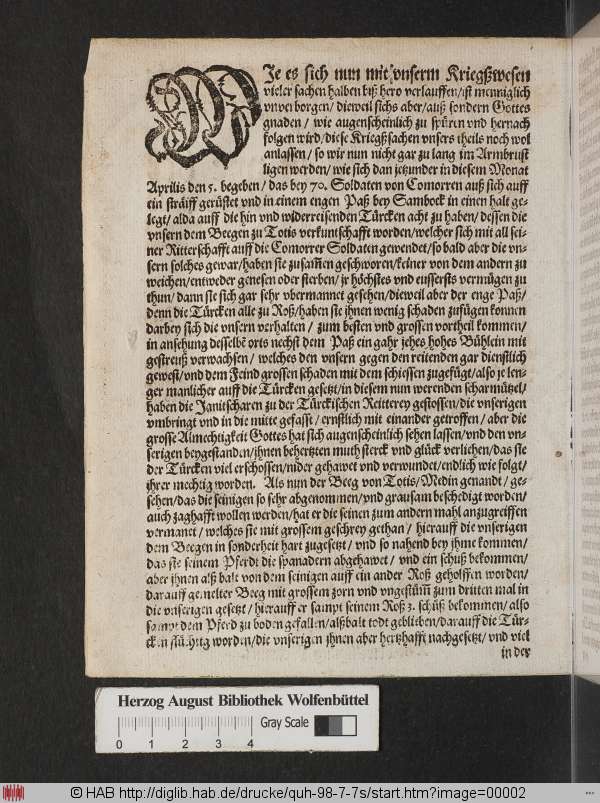 WJe es sich nun mit vnserm Kriegßwesen
vieler sachen halben biß hero verlauffen/ ist menniglich
vnverborgen/ dieweil sichs aber/ auß sondern Gottes
gnaden/ wie augenscheinlich zu spüren vnd hernach
folgen wird/ diese Kriegßsachen vnsers theils noch wol
anlassen/ so wir nun nicht gar zu lang im Armbrust
ligen werden/ wie sich dan jetzunder in diesem Monat
Aprilis den 5. begeben/ das bey 70. Soldaten von Comorren auß sich auff
ein sträiff gerüstet vnd in einem engen Paß bey Sambock in einen halt ge-
legt/ alda auff die hin vnd widerreisenden Türcken acht zu haben/ dessen die
vnsern dem Beegen zu Totis verkuntschafft worden/ welcher sich mit all sei-
ner Ritterschafft auff die Comorrer Soldaten gewendet/ so bald aber die vn-
sern solches gewar/ haben sie zusam̃en geschworen/ keiner von dem andern zu
weichen/ entweder genesen oder sterben/ jr höchstes vnd eusserstes vermügen zu
thun/ dann sie sich gar sehr vbermannet gesehen/ dieweil aber der enge Paß/
denn die Türcken alle zu Roß/ haben sie jhnen wenig schaden zufügen konnen
darbey sich die vnsern verhalten/ zum besten vnd grossen vortheil kommen/
in ansehung desselbẽ orts nechst dem Paß ein gahr jehes hohes Bühlein mit
gestreuß verwachsen/ welches den vnsern gegen den reitenden gar dienstlich
gewest/ vnd dem Feind grossen schaden mit dem schiessen zugefügt/ also je len-
ger manlicher auff die Türcken gesetzt/ in diesem nun werenden scharmützel/
haben die Janitscharen zu der Türckischen Reitterey gestossen/ die vnserigen
vmbringt vnd in die mitte gefasst/ ernstlich mit einander getroffen/ aber die
grosse Almechtigkeit Gottes hat sich augenscheinlich sehen lassen/ vnd den vn-
serigen beygestanden/ jhnen behertzten muth sterck vnd glück verliehen/ das sie
der Türcken viel erschossen/ nider gehawet vnd verwundet/ endlich wie folgt/
jhrer mechtig worden. Als nun der Beeg von Totis/ Medin genandt/ ge-
sehen/ das die seinigen so sehr abgenommen/ vnd grausam beschedigt worden/
auch zaghafft wollen werden/ hat er die seinen zum andern mahl anzugreiffen
vermanet/ welches sie mit grossem geschrey gethan/ hierauff die vnserigen
dem Beegen in sonderheit hart zugesetzt/ vnd so nahend bey jhme kommen/
das sie seinem Pferdt die spanadern abgehawet/ vnd ein schuß bekommen/
aber jhnen alß balt von dem seinigen auff ein ander Roß geholffen worden/
darauff gemelter Beeg mit grossem zorn vnd vngestüm̃ zum dritten mal in
die vnserigen gesetzt/ hierauff er sampt seinem Roß 3. schüß bekommen/ also
sampt dem Pferd zu boden gefallen/ alßbalt todt geblieben/ darauff die Tür-
cken flüchtig worden/ die vnserigen jhnen aber hertzhafft nachgesetzt/ vnd viel
in der
Herzog August Bibliothek Wolfenbüttel
0 1 2 3 4 Gray Scale
© HAB http://diglib.hab.de/drucke/quh-98-7-7s/start.htm?image=00002